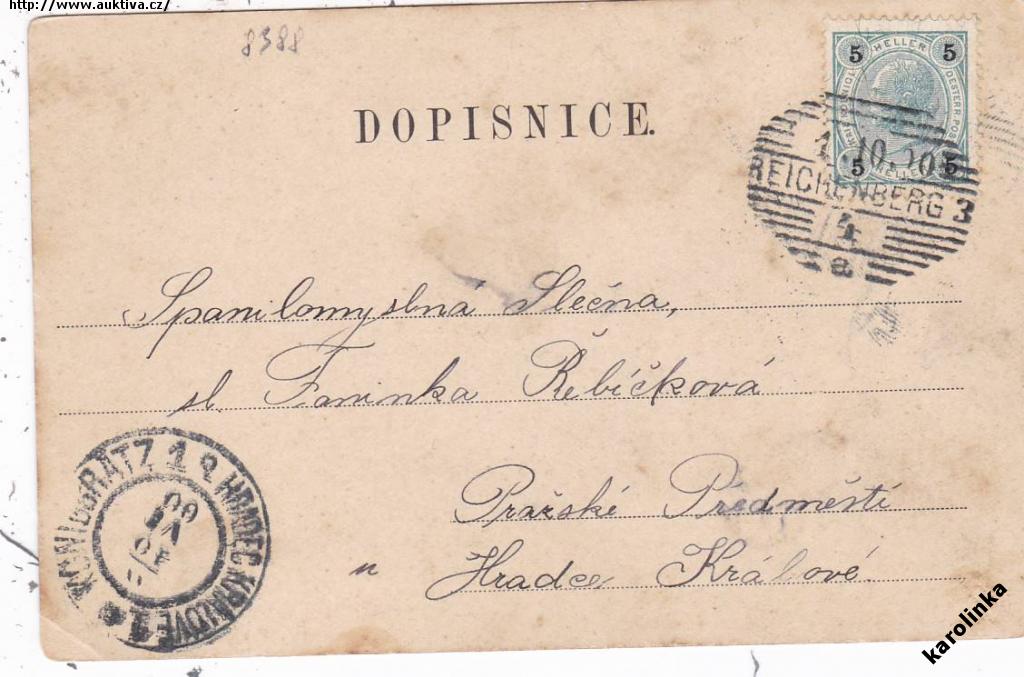 http://www.auktiva.cz/
8388
DOPISNICE.
5 HELLER 5
5 HELLER 5
REICHENBERG 3
Spanilomyslná Slečna,
sl. Faninka Řebíčková
Pražské Předměstí
u Hradce Králové.
KÖNIGGRATZ 1 HRADEC KRÁLOVÉ 1
karolinka